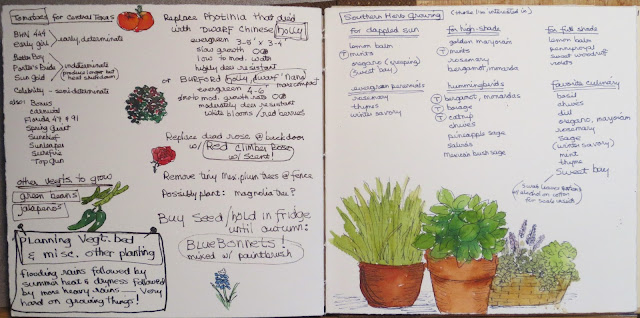 Tomatoes for Central Texas
BHN 444
Early girl
early, determinate
Better Boy
Sun gold
indeterminate
(produce longer but
heat shutdown)
Celebrity - semi-determinate
also: Bonus
Carnival
Florida 47 & 91
Spring Giant
Sunbeam
Sunleaper
Surefire
Top Gun
other vegts to grow
green beans
jalapeños
Planning Vegt. bed
& misc. other planting
flooding rains followed by
summer heat & dryness followed
by more heavy rains — Very
hard on growing things!
Replace Photinia that died
with DWARF Chinese holly
evergreen 3-5' x 3-4'
slow growth OR
low to mod. water
highly deer resistant
or BURFORD holly, dwarf 'Nana'
evergreen 4-6' more compact
moderately deer resistant
white blooms / red berries
Replace dead rose @ back door
w/ Red climber Rose
w/ scent!
Remove tiny Mex. plum trees @ fence
Possibly plant: magnolia tree?
Buy Seed / hold in fridge
until autumn:
BlueBonnets!
mixed w/ paintbrush
Southern Herb Growing (those I'm interested in)
for dappled sun
lemon balm
T mints
oregano (creeping)
(sweet bay)
evergreen perennials
rosemary
thymes
winter savory
for high-shade
golden marjoram
mints
rosemary
bergamot, monarda
hummingbirds
T bergamot, monardas
T borage
T catnip
chives
pineapple sage
salvias
mexican bush sage
for full shade
lemon balm
pennyroyal
sweet woodruff
violets
favorite culinary
basil
chives
dill
oregano, marjoram
rosemary
sage
(winter savory)
mint
thyme
Sweet bay
(Swab leaves & stem
w/ alcohol on cotton
for scale insects)